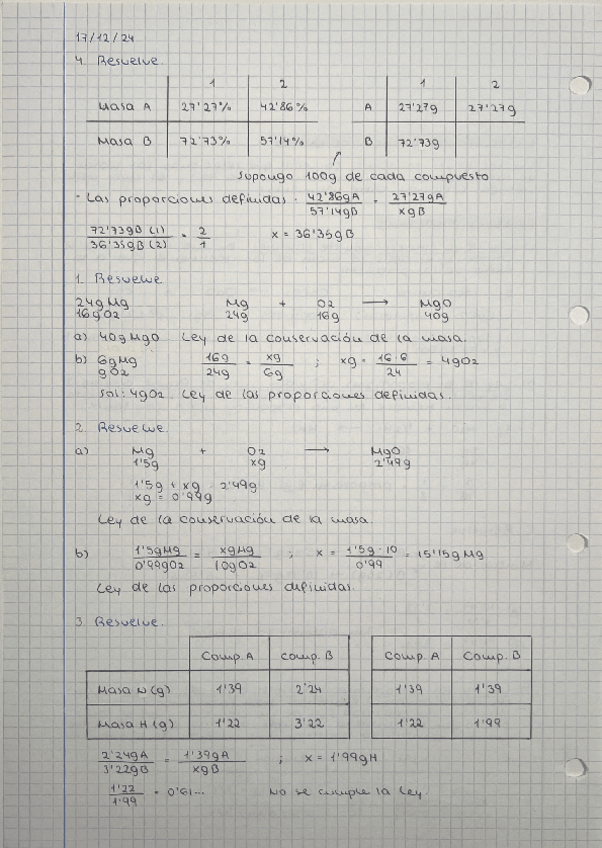 17/12/24
4. Resuelve.
1 2 1 2
Masa A 27'27% 42'86% A 27'27g 27'27g
Masa B 72'73% 57'14% B 72'73g
Supongo 100g de cada compuesto
- Las proporciones definidas. 42'86gA / 57'14gB = 27'27gA / xgB
72'73gB (1) / 36'35gB (2) = 2 / 1 x = 36'35gB
1. Resuelve
24g Mg Mg + O2 → MgO
16g O2 24g 16g 40g
a) 40g MgO Ley de la conservación de la masa.
b) 6g Mg 16g / 24g = xg / 6g ; xg = 16·6 / 24 = 4gO2
g O2
Sol: 4gO2. Ley de las proporciones definidas.
2. Resuelve.
a) Mg + O2 → MgO
1'5g xg 2'49g
1'5g + xg = 2'49g
xg = 0'99g
Ley de la conservación de la masa.
b) 1'5gMg / 0'99gO2 = xgMg / 10gO2 ; x = 1'5g·10 / 0'99 = 15'15gMg
Ley de las proporciones definidas.
3. Resuelve.
Comp. A Comp. B Comp. A Comp. B
Masa N (g) 1'39 2'24 1'39 1'39
Masa H (g) 1'22 3'22 1'22 1'99
2'24gA / 3'22gB = 1'39gA / xgB ; x = 1'99gH
1'22 / 1'99 = 0'61... No se cumple la ley.